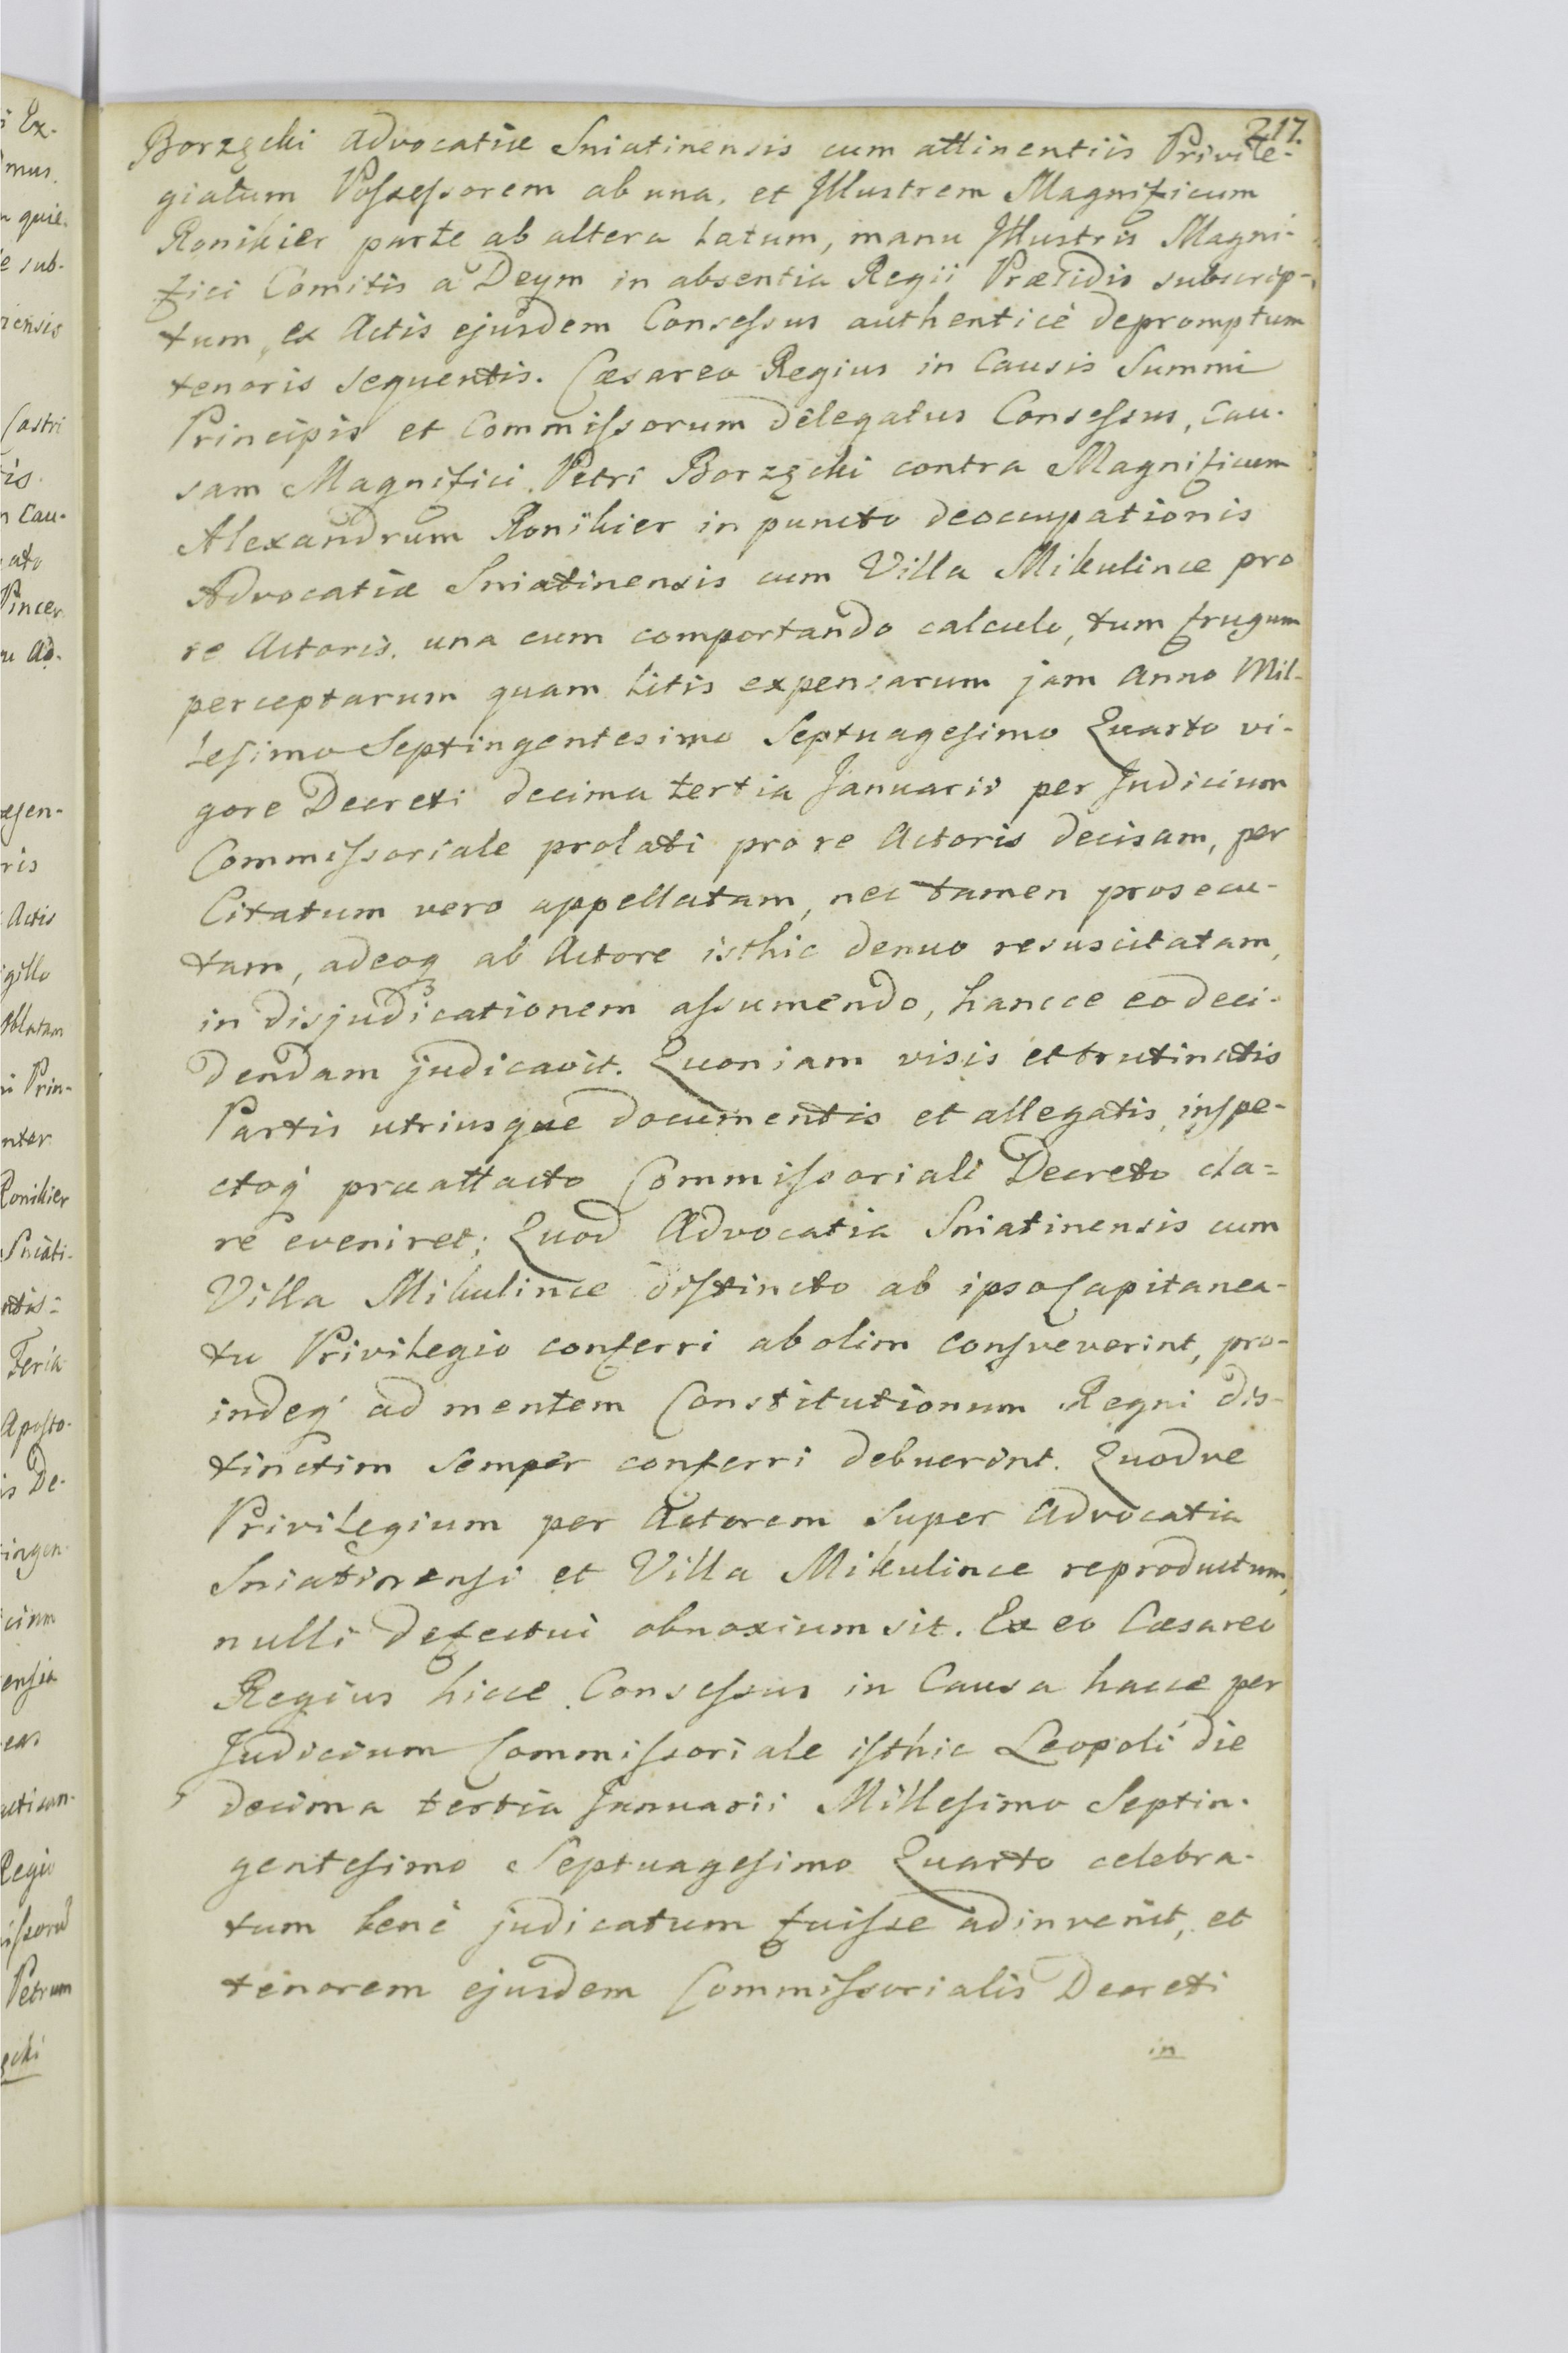 217.
Borzęcki Advocatiæ Sniatinensis cum attinentiis Privile-
giatum Poſseſsorem ab una, et Illustrem Magnificum
Ronikier parte ab altera latum, manu Illustris Magni-
fici Comitis a Deym in absentia Regii Præsidis subscrip-
tum, ex Actis ejusdem Conseſsus authenticè depromptum
tenoris sequentis. Cæsareo Regius in Causis Summi
Principis et Commiſsorum delegatus Conseſsus, Cau-
sam Magnifici Petri Borzęcki contra Magnificum
Alexandrum Ronikier in puncto deoccupationis
Advocatiæ Sniatinensis cum Villa Mikulince pro
re Actoris, una cum comportando calculo, tum frugum
perceptarum quam litis expensarum jam Anno Mil-
leſimo Septingentesimo Septuageſimo Quarto vi-
gore Decreti decima tertia Januarii per Judicium
Commiſsoriale prolati pro re Actoris decisam, per
Citatum vero appellatam, nec tamen prosecu-
tam, adeoq ab Actore isthic denuo resuscitatam,
in disjudicationem aſsumendo, hancce eo deci-
dendam judicavit. Quoniam visis et trutinatis
Partis utriusque documentis et allegatis, inſpe-
ctoq́ præattacto Commiſsoriali Decreto cla=
rè eveniret; Quod Advocatia Sniatinensis cum
Villa Mikulince diſtincto ab ipso Capitanea-
tu Privilegio conferri ab olim conſveverint, pro-
indeq́ ad mentem Constitutionum Regni dis-
tinctim semper conferri debuerint. Quodve
Privilegium per Actorem super Advocatia
Sniatinenſi et Villa Mikulince reproductum,
nulli defectui obnoxium sit. Ex eo Cæsareo
Regius hicce Conseſsus in Causa hacce per
Judicium Commiſsoriale iſthic Leopoli die
decima tertia Januarii Milleſimo Septin-
genteſimo Septuageſimo Quarto celebra-
tum benè judicatum fuiſse adinvenit, et
tenorem ejusdem Commiſsorialis Decreti
in